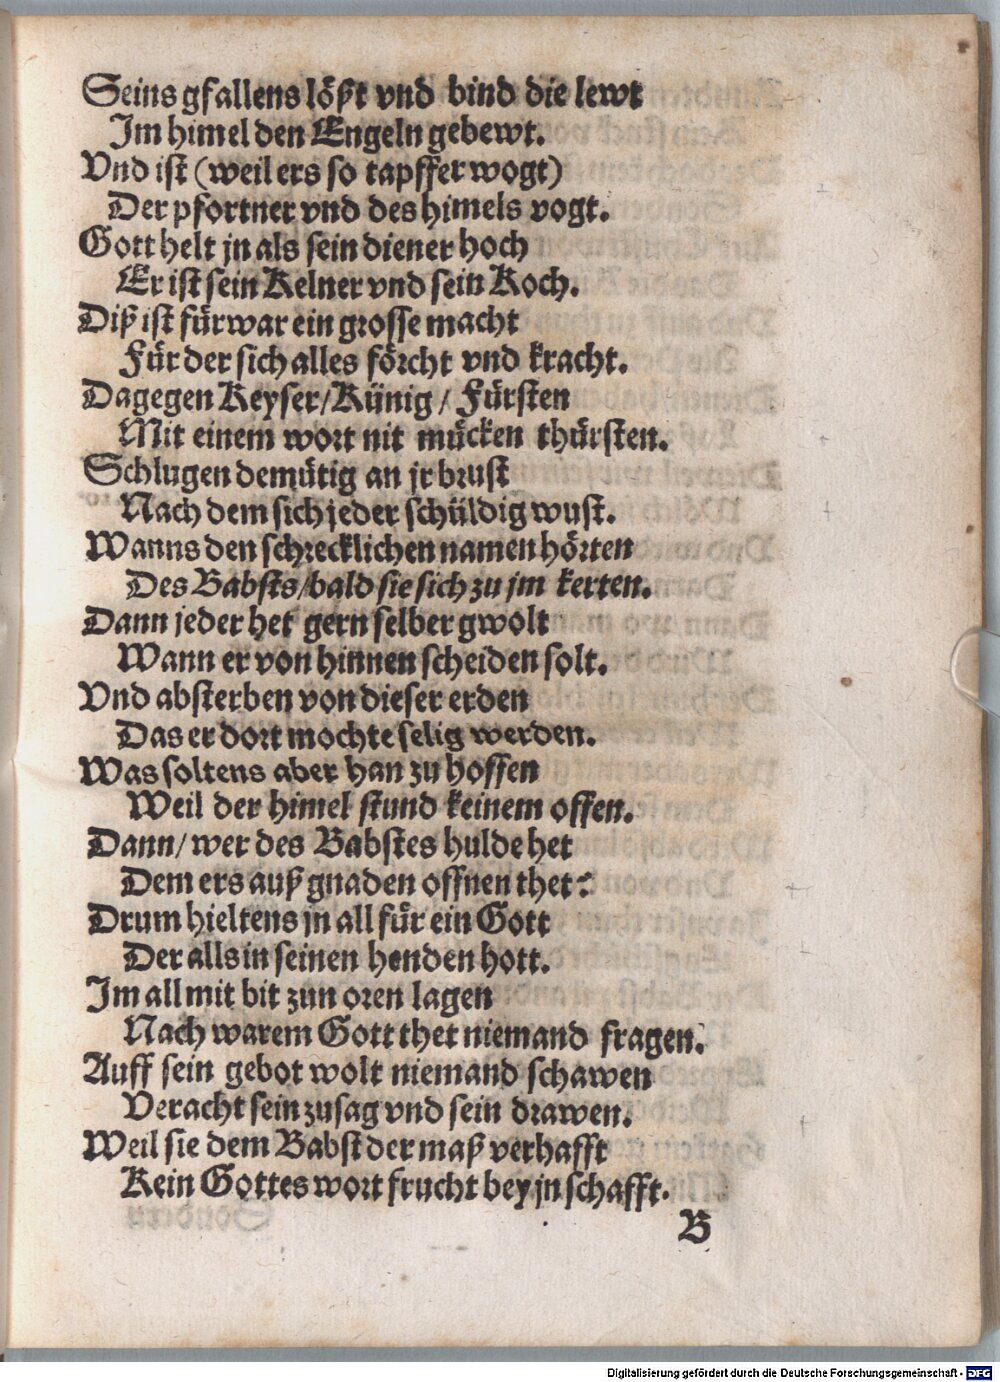 Seins gfallens lößt vnd bind die lewt
Im himel den Engeln gebewt.
Vnd ist (weil ers so tapffer wogt)
Der pfortner vnd des himels vogt.
Gott helt jn als sein diener hoch
Er ist sein Kelner vnd sein Koch.
Diß ist fürwar ein grosse macht
Für der sich alles förcht vnd kracht.
Dagegen Keyser/Künig/Fürsten
Mit einem wort nit mücken thürsten.
Schlugen demütig an jr brust
Nach dem sich jeder schüldig wust.
Wanns den schrecklichen namen hörten
Des Babsts/bald sie sich zu jm kerten.
Dann jeder het gern selber gwolt
Wann er von hinnen scheiden solt.
Vnd absterben von dieser erden
Das er dort mochte selig werden.
Was soltens aber han zu hoffen
Weil der himel stund keinem offen.
Dann/wer des Babstes hulde het
Dem ers auß gnaden offnen thet:
Drum hieltens jn all für ein Gott
Der alls in seinen henden hott.
Im all mit bit zun oren lagen
Nach warem Gott thet niemand fragen.
Auff sein gebot wolt niemand schawen
Veracht sein zusag vnd sein drawen.
Weil sie dem Babst der maß verhafft
Kein Gottes wort frucht bey jn schafft.
B
Digitalisierung gefördert durch die Deutsche Forschungsgemeinschaft - DFG